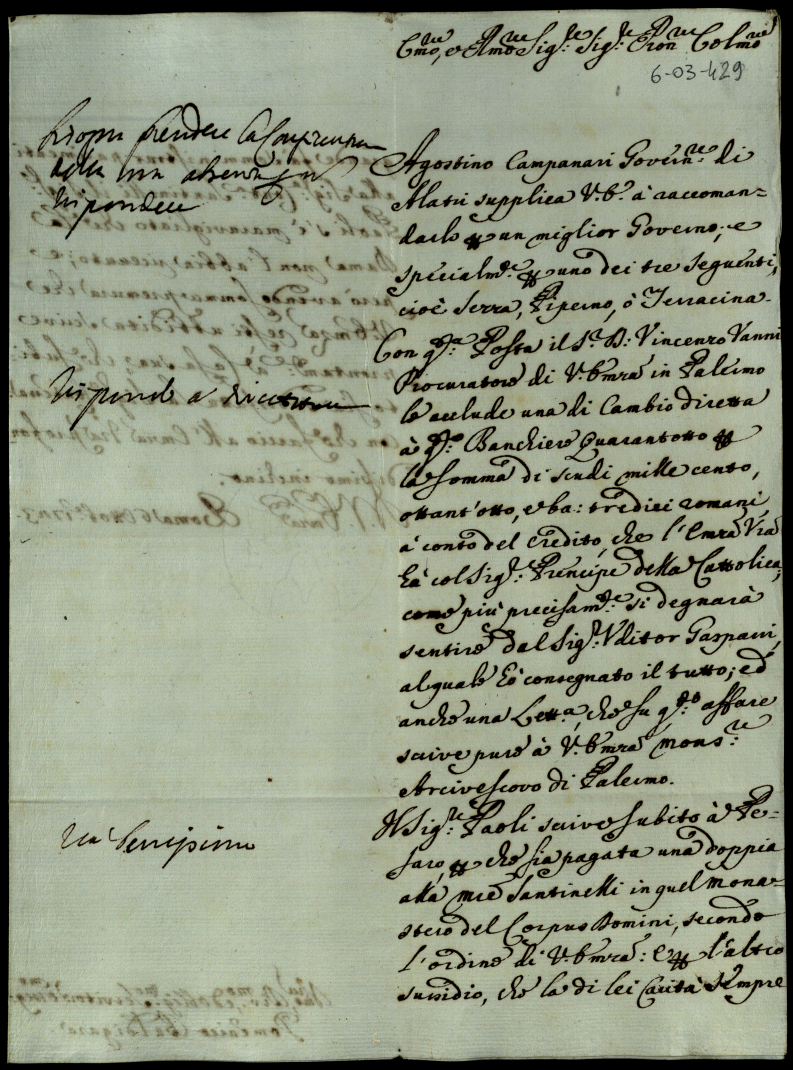 Emo, e Rmo Sig.r Sig.r Pron Colmo
6-03-429
Bisogna prendere la
della mia
rispondere
Agostino Campanari Govern.re di
Alatri supplica V. E. à raccoman=
darlo un miglior Governo, e
specialm.te uno dei tre seguenti,
cioè Sezza, Piperno, ò Terracina.
Con q.ta Posta il S.r D: Vincenzo Vanni
Procuratore di V. Emza in Palermo
le acclude una di Cambio diretta
à q.to Banchiere Quarantotto
la somma di scudi mille cento,
ottant'otto, e ba: tredici romani
a conto del credito, che l'Emza Vra
hà col Sig.r Prencipe della Cattolica;
come più precisam.te si degnarà
sentire dal Sig.r Uditor Gasparri,
al quale hò consegnato il tutto; ed
anche una Lett.a, che su q.to affare
scrive pure à V. Emza Mons.re
Arcivescovo di Palermo.
Risponde a
Il Sig.r Paoli scrive subito à Pe=
saro, che sia pagata una doppia
alla Mre Santinelli in quel Mona=
stero del Corpus Domini, secondo
l'ordine di V. Emza: e l'altro
sussidio, che la di lei Carità sempre